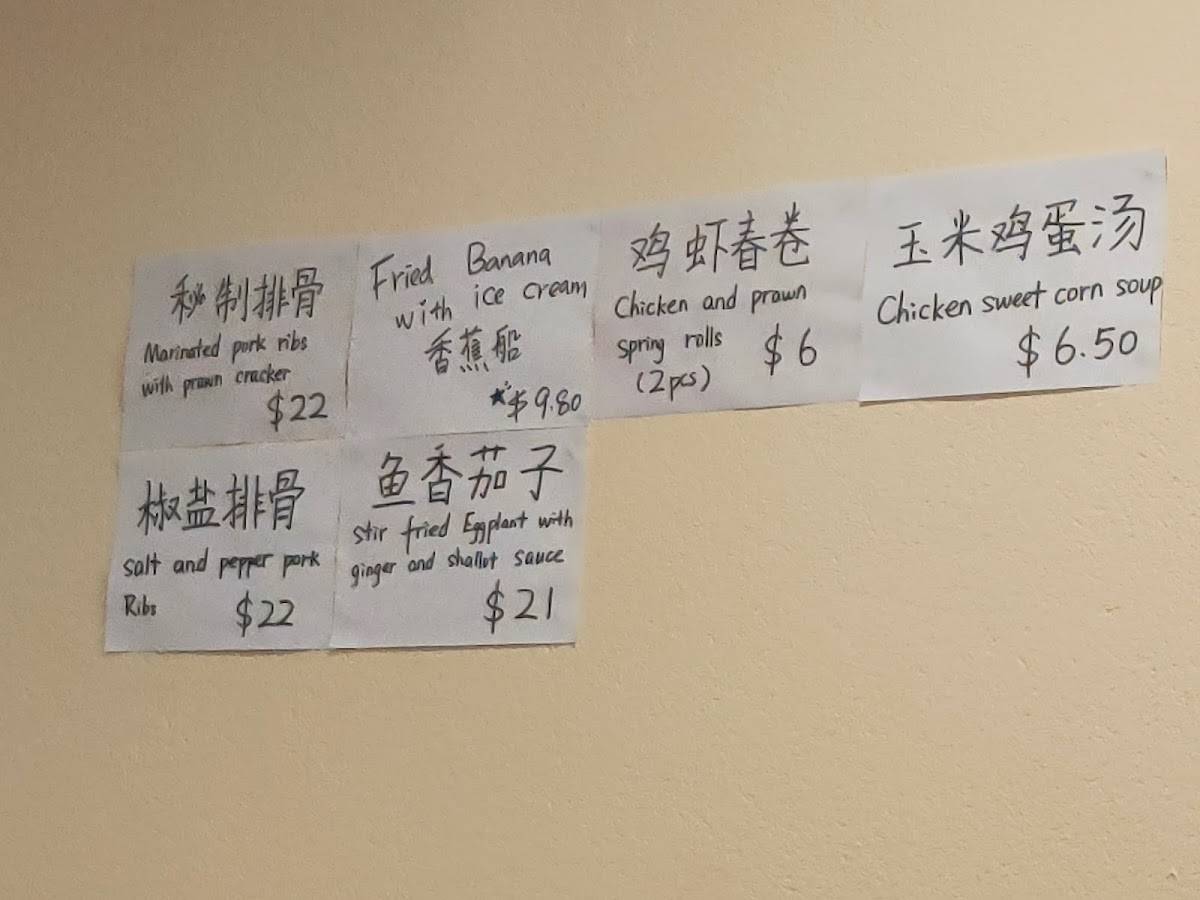 秘制排骨
Marinated pork ribs
with prawn cracker
$22
Fried Banana
with ice cream
香蕉船
★$9.80
鸡虾春卷
Chicken and prawn
spring rolls
(2pcs)
$6
玉米鸡蛋汤
Chicken sweet corn soup
$6.50
椒盐排骨
salt and pepper pork
Ribs
$22
鱼香茄子
stir fried Eggplant with
ginger and shallot sauce
$21